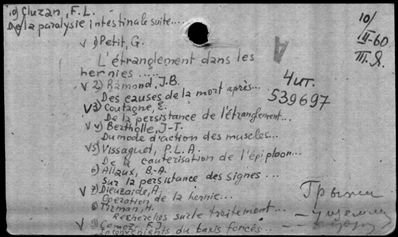 10) Cluzan, F.L.
De la paralysie intestinale suite...
10/
III-60
III.Я.
√ 1) Petit, G.
L'étranglement dans les
hernies ....
√ 2) Ramond, J.B.
Des causes de la mort après...
Чит.
539697
√3) Coutagne, E.
De la persistance de l'étranglement...
√ 4) Bertholle, J-T.
Du mode d'action des muscles...
√5) Vissaguet, P.L.A.
De la cauterisation de l'épiploon...
6) Allaux, B-A.
Sur la persistance des signes ...
√ 7) Dieuzaide, A.
Opération de la hernie...
8) Tizman, H.
Recherches sur le traitement...
√ 9) Gomez, F.
Inconvénients du taxis forcés...
Грыжи